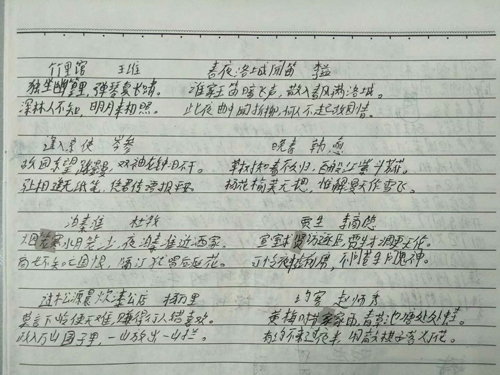 竹里馆 王维
独坐幽篁里,弹琴复长啸。
深林人不知,明月来相照。
春夜洛城闻笛 李
谁家玉笛暗飞声,散入春风满洛城。
此夜曲中闻折柳,何人不起故园情。
逢入京使 岑参
故园东望路,双袖龙钟泪不干。
相逢无纸笔,凭君传语报平安。
晚春 韩愈
草树知春不久归,百般红紫斗芳菲。
杨花榆荚无才思,惟解漫天作雪飞。
泊秦淮 杜牧
烟寒水月笼沙,夜泊秦淮近酒家。
商女不知亡国恨,隔江犹唱后庭花。
贾生 李商隐
宣室求贤访逐臣,贾生才调更无伦。
可怜夜半虚前席,不问苍生问鬼神。
过松源晨炊漆公店 杨万里
莫言下岭便无难,赚得行人错喜欢。
政入万山圈子里,一山放出一山拦。
约客 赵师秀
黄梅时节家家雨,青草池塘处处蛙。
有约不来过夜半,闲敲棋子落灯花。